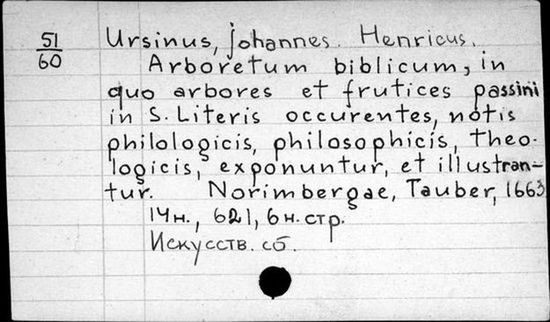 51
60
Ursinus, Johannes. Henricus.
Arboretum biblicum, in
quo arbores et frutices passini
in S. Literis occurentes, notis
philologicis, philosophicis, theo-
logicis, exponuntur, et illustran-
tur. Norimbergae, Tauber, 1663
14н., 621, 6н. стр.
Искусств. сб.